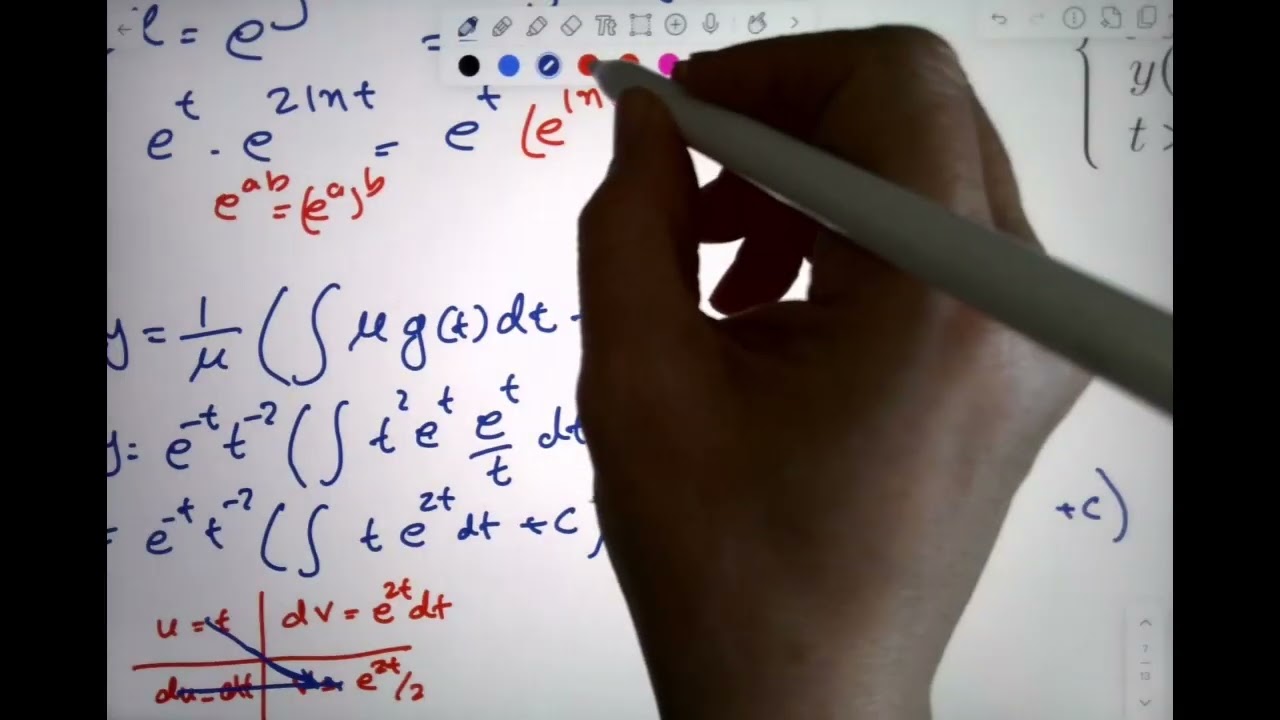 = e^
=
y(
e^t . e^{2lnt} = e^t (e^{ln
t >
e^{ab} = (e^a)^b
y = 1/μ (∫ μ g(t) dt
y = e^{-t} t^{-2} (∫ t^2 e^t e^t/t dt
= e^{-t} t^{-2} (∫ t e^{2t} dt + c)
+c)
u = t dv = e^{2t} dt
du = dt v = e^{2t}/2
7
13